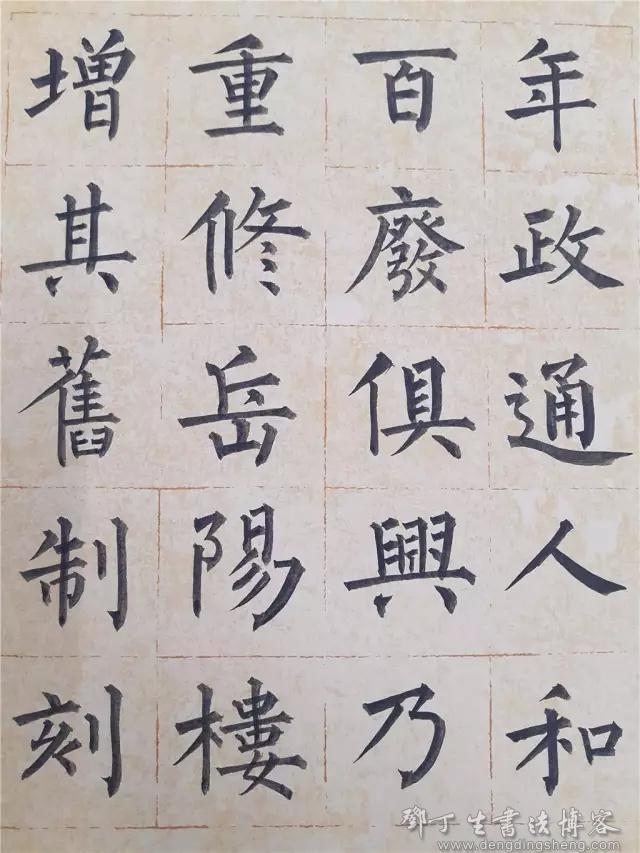 年政通人和
百廢俱興乃
重修岳陽樓
增其舊制刻
鄧丁生書法博客
www.dengdingsheng.com